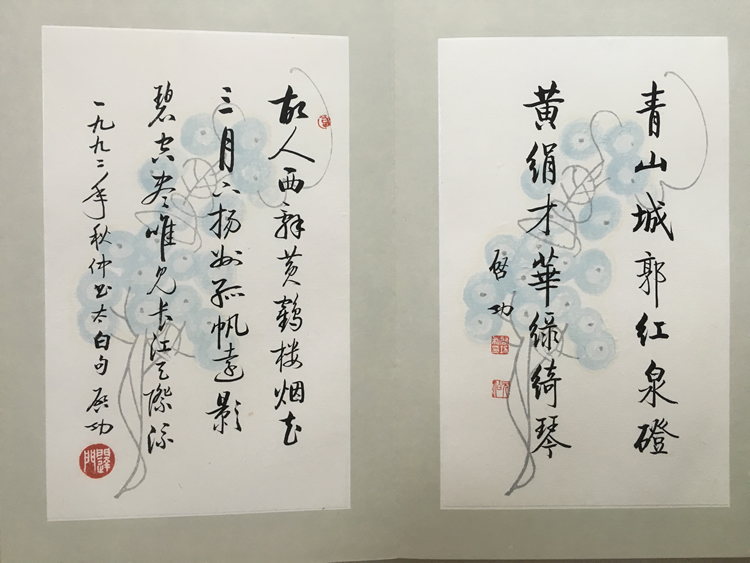 青山城郭红泉磴
黄绢才華绿绮琴
啓功
故人西辞黄鹤楼烟花
三月下扬州孤帆远影
碧空尽唯见长江天際流
一九九二年秋仲书太白句 啓功